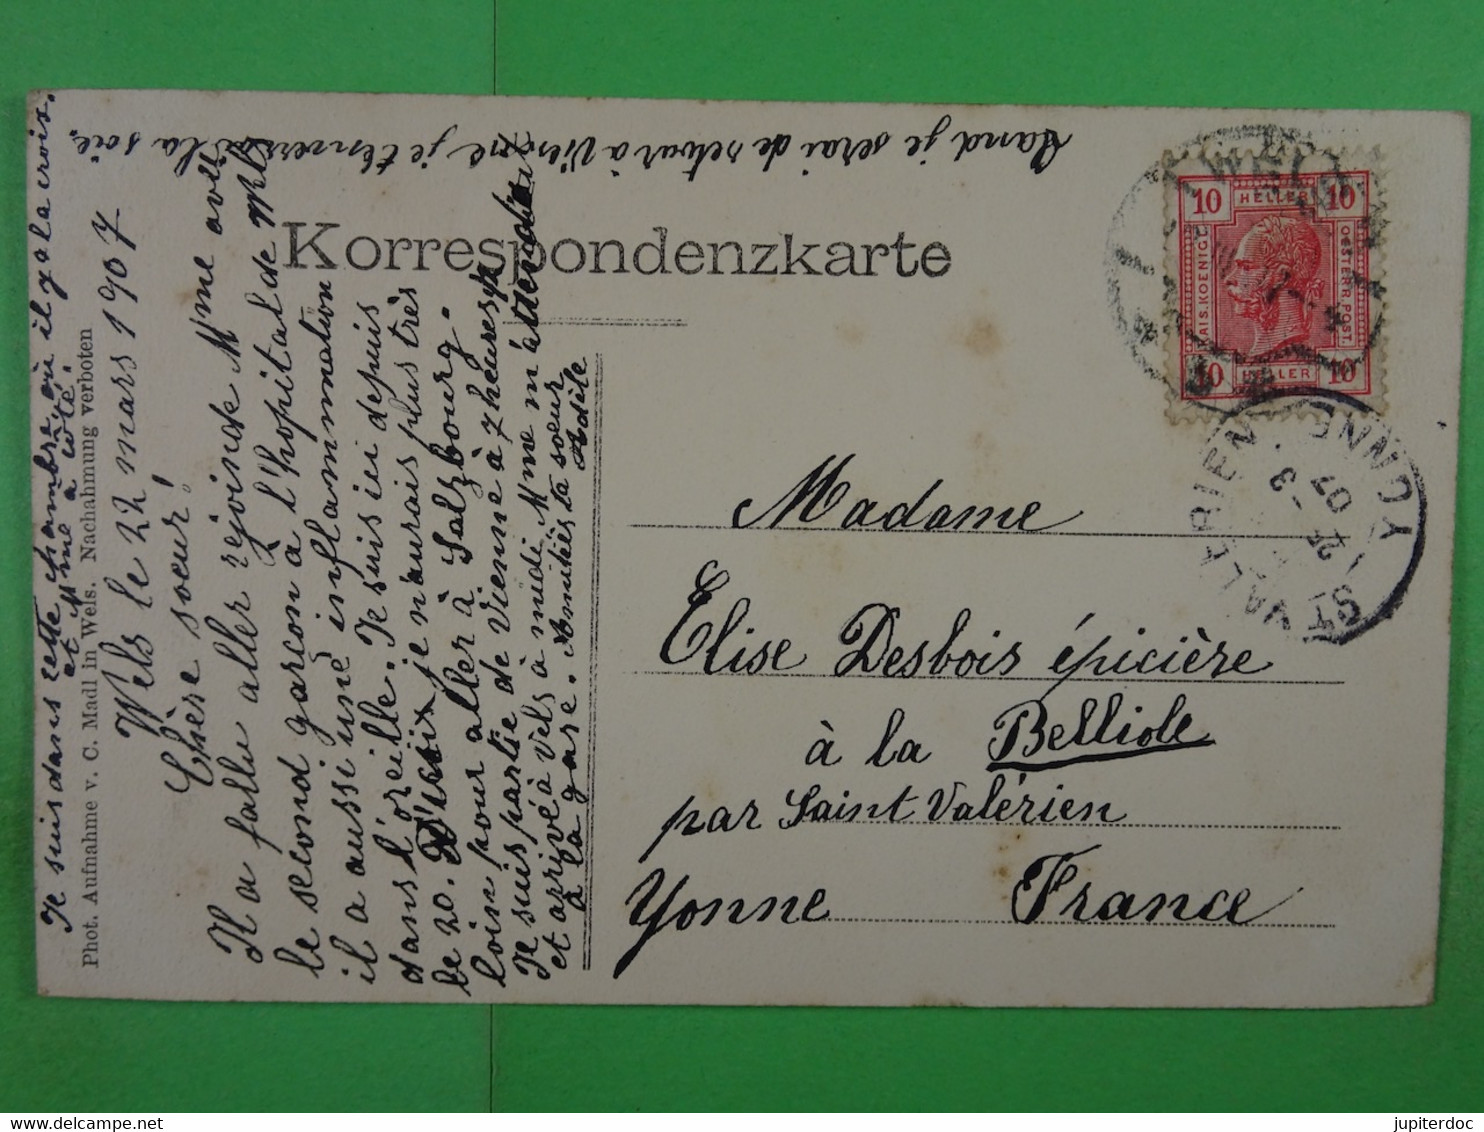 Korrespondenzkarte
Phot. Aufnahme v. C. Madl in Wels. Nachahmung verboten
Je suis dans cette chambre où il y a la croix.
et Mme à côté.
Wels le 22 mars 1907
Chère soeur!
Il a fallu aller rejoinde Mme avec
le second garçon à l'hopital de Wels
il a aussi une inflammation
dans l'oreille. Je suis ici depuis
le 20. D'ici je n'aurais plus très
loin pour aller à Salzbourg.
Je suis partie de Vienne à 7 heures
et arrivé à Wels à midi Mme m'attendait
à la gare. Amitiés ta soeur
Adèle
Quand je serai de retour à Vienne je t'enverrai la soie.
Madame
Elise Desbois épicière
à la Belliole
par Saint Valérien
Yonne France
10 HELLER 10
KAIS. KOENIGL.
OESTERR. POST.
10 HELLER 10
ST VALERIEN
25 -3
07
YONNE
jupiterdoc